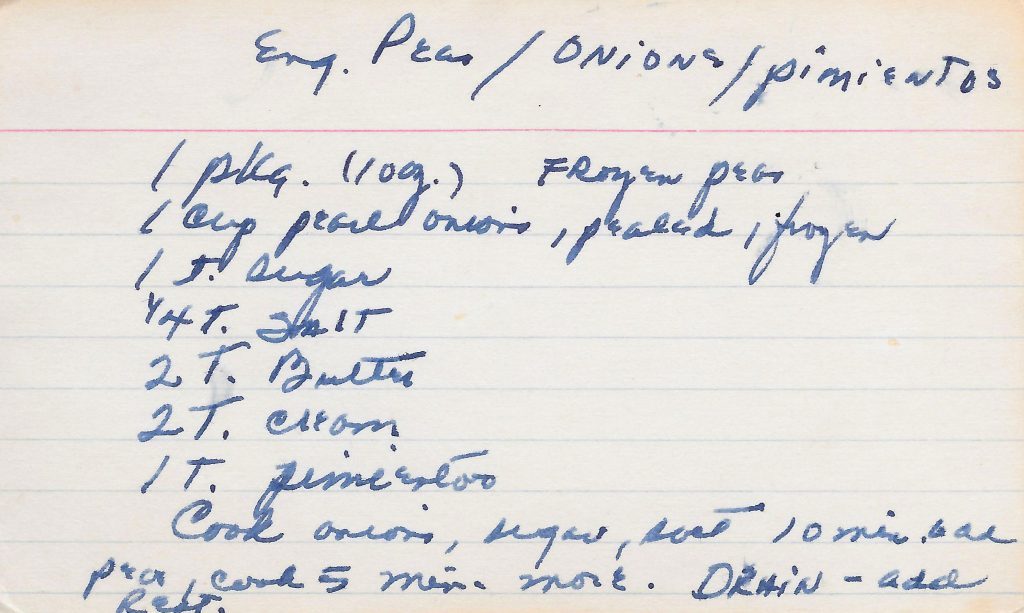 Eng. Peas / ONIONS / pimientos
1 pkg. (10 oz.) FROZEN peas
1 Cup pearl onions, pealed, frozen
1 T. sugar
1/4 T. SALT
2 T. Butter
2 T. cream
1 T. pimientos
Cook onions, sugar, salt 10 min. add
peas, cook 5 min. more. DRAIN - add
Rest.